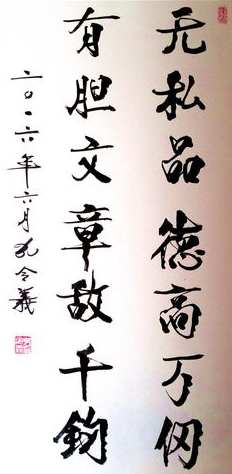 无私品德高万仞
有胆文章敌千鈞
二〇一六年六月孔令義